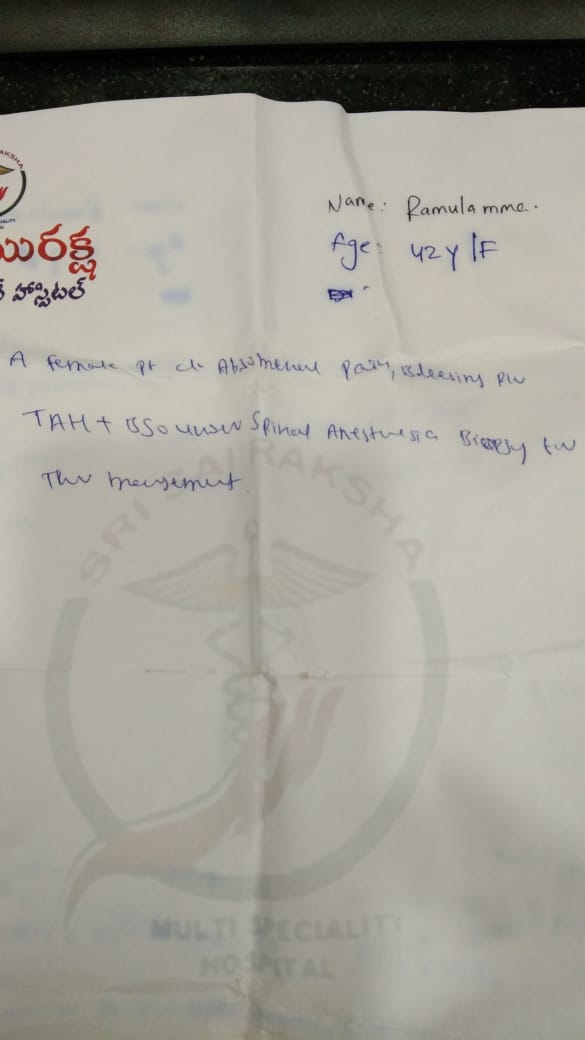 RAKSHA
Name: Ramulamma.
Age: 42y/F
రక్ష
హాస్పిటల్
A Female pt c/o Abdomenal pain, Bleeding P/v
TAH + BSO under Spinal Anesthesia Biopsy for
SRI SAI RAKSHA
MULTI SPECIALITY
HOSPITAL